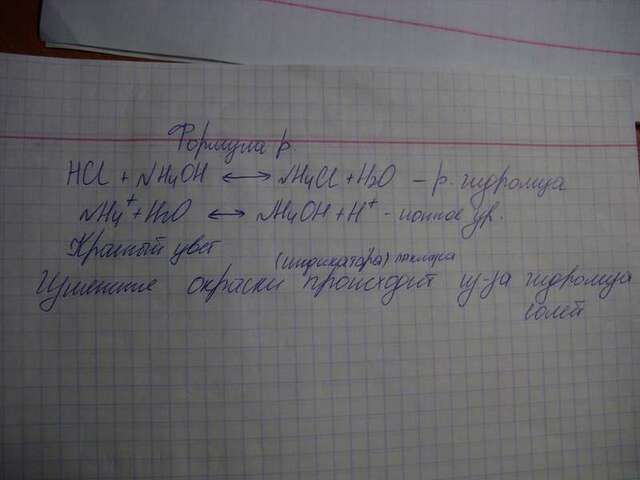 Формула р.
HCl + NH4OH ⟷ NH4Cl + H2O – р. гидролиза
NH4+ + H2O ⟷ NH4OH + H+ - ионное ур.
Красный цвет
(индикатора) лакмуса
Изменение окраски происходит из-за гидролиза
солей